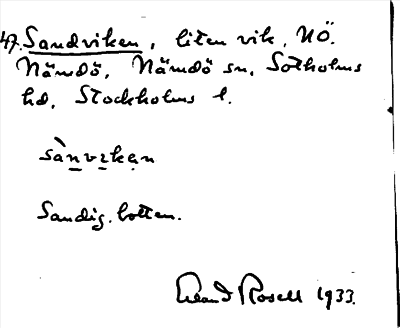 47. Sandviken, liten vik, NÖ.
Nämdö, Nämdö sn, Sotholms
hd, Stockholms l.
sànvikạn
Sandig botten.
Erland Rosell 1933.